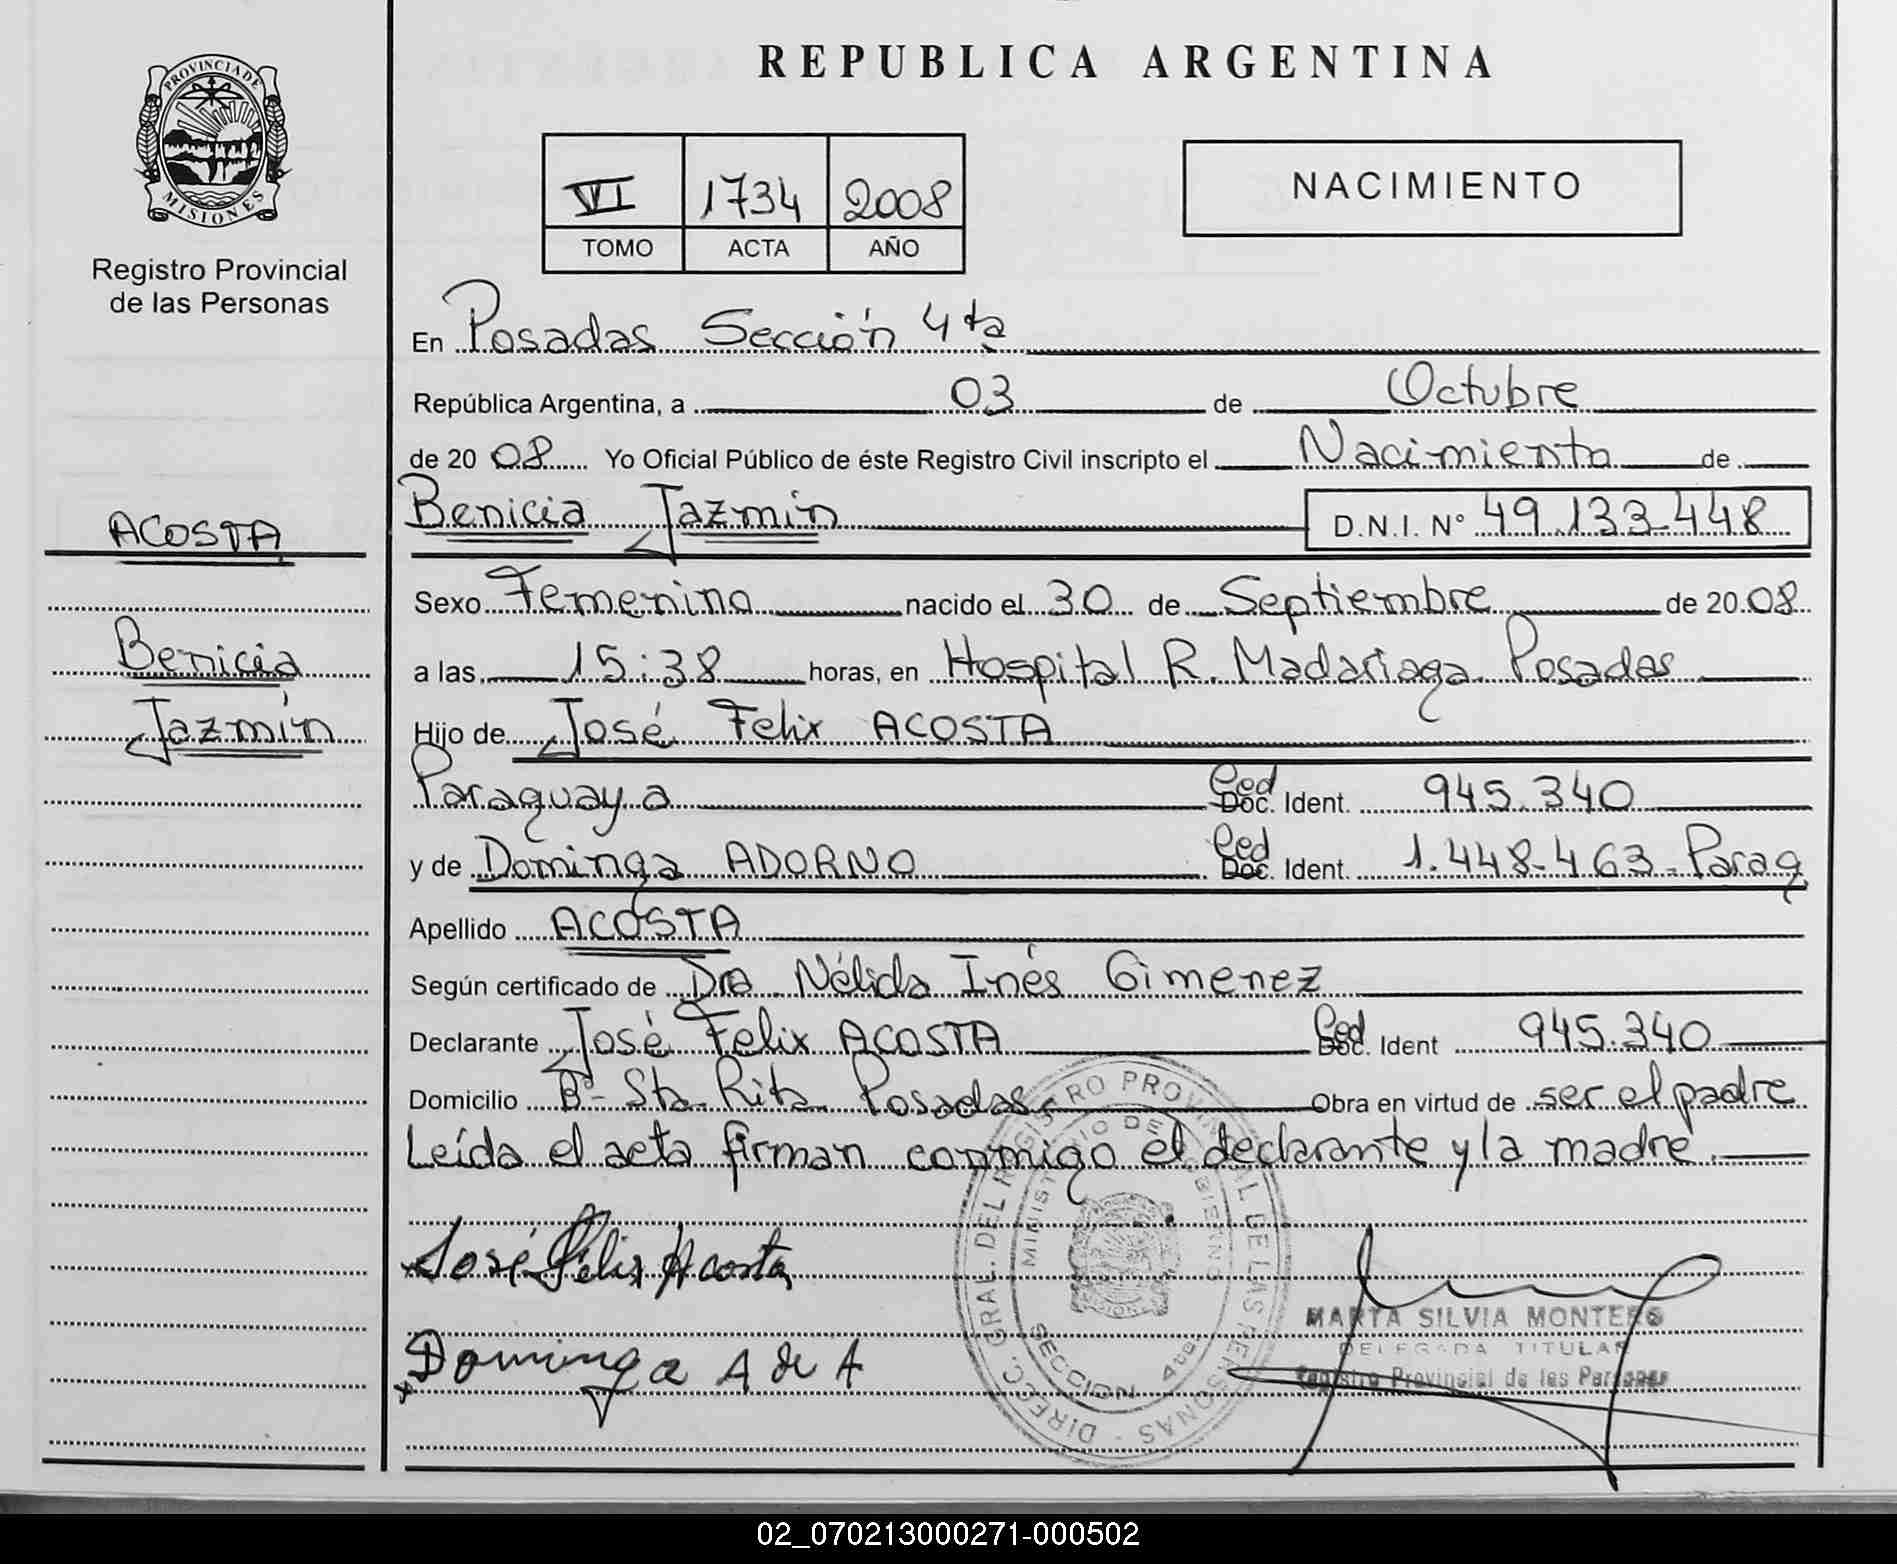 REPUBLICA ARGENTINA
PROVINCIA DE
MISIONES
Registro Provincial
de las Personas
VI 1734 2008
TOMO ACTA AÑO
NACIMIENTO
En Posadas Sección 4ta
República Argentina, a 03 de Octubre
de 20 08 Yo Oficial Público de éste Registro Civil inscripto el Nacimiento de
Benicia Jazmín D.N.I. N° 49.133.448
ACOSTA
Sexo Femenino nacido el 30 de Septiembre de 20 08
Benicia
a las 15:38 horas, en Hospital R. Madariaga Posadas
Jazmín
Hijo de José Felix ACOSTA
Paraguaya Ced Doc. Ident. 945.340
y de Dominga ADORNO Ced Doc. Ident. 1.448.463 - Parag
Apellido ACOSTA
Según certificado de Dra Nélida Inés Gimenez
Declarante José Felix ACOSTA Ced Doc. Ident 945.340
Domicilio Bº Sta. Rita Posadas Obra en virtud de ser el padre
Leída el acta firman conmigo el declarante y la madre.
José Félix Acosta
Dominga A de A
DIRECC. GRAL. DEL REGISTRO PROVINCIAL DE LAS PERSONAS
MINISTERIO DE GOBIERNO
MISIONES
SECCION 4ta
MARTA SILVIA MONTERO
DELEGADA TITULAR
Registro Provincial de las Personas
02_070213000271-000502